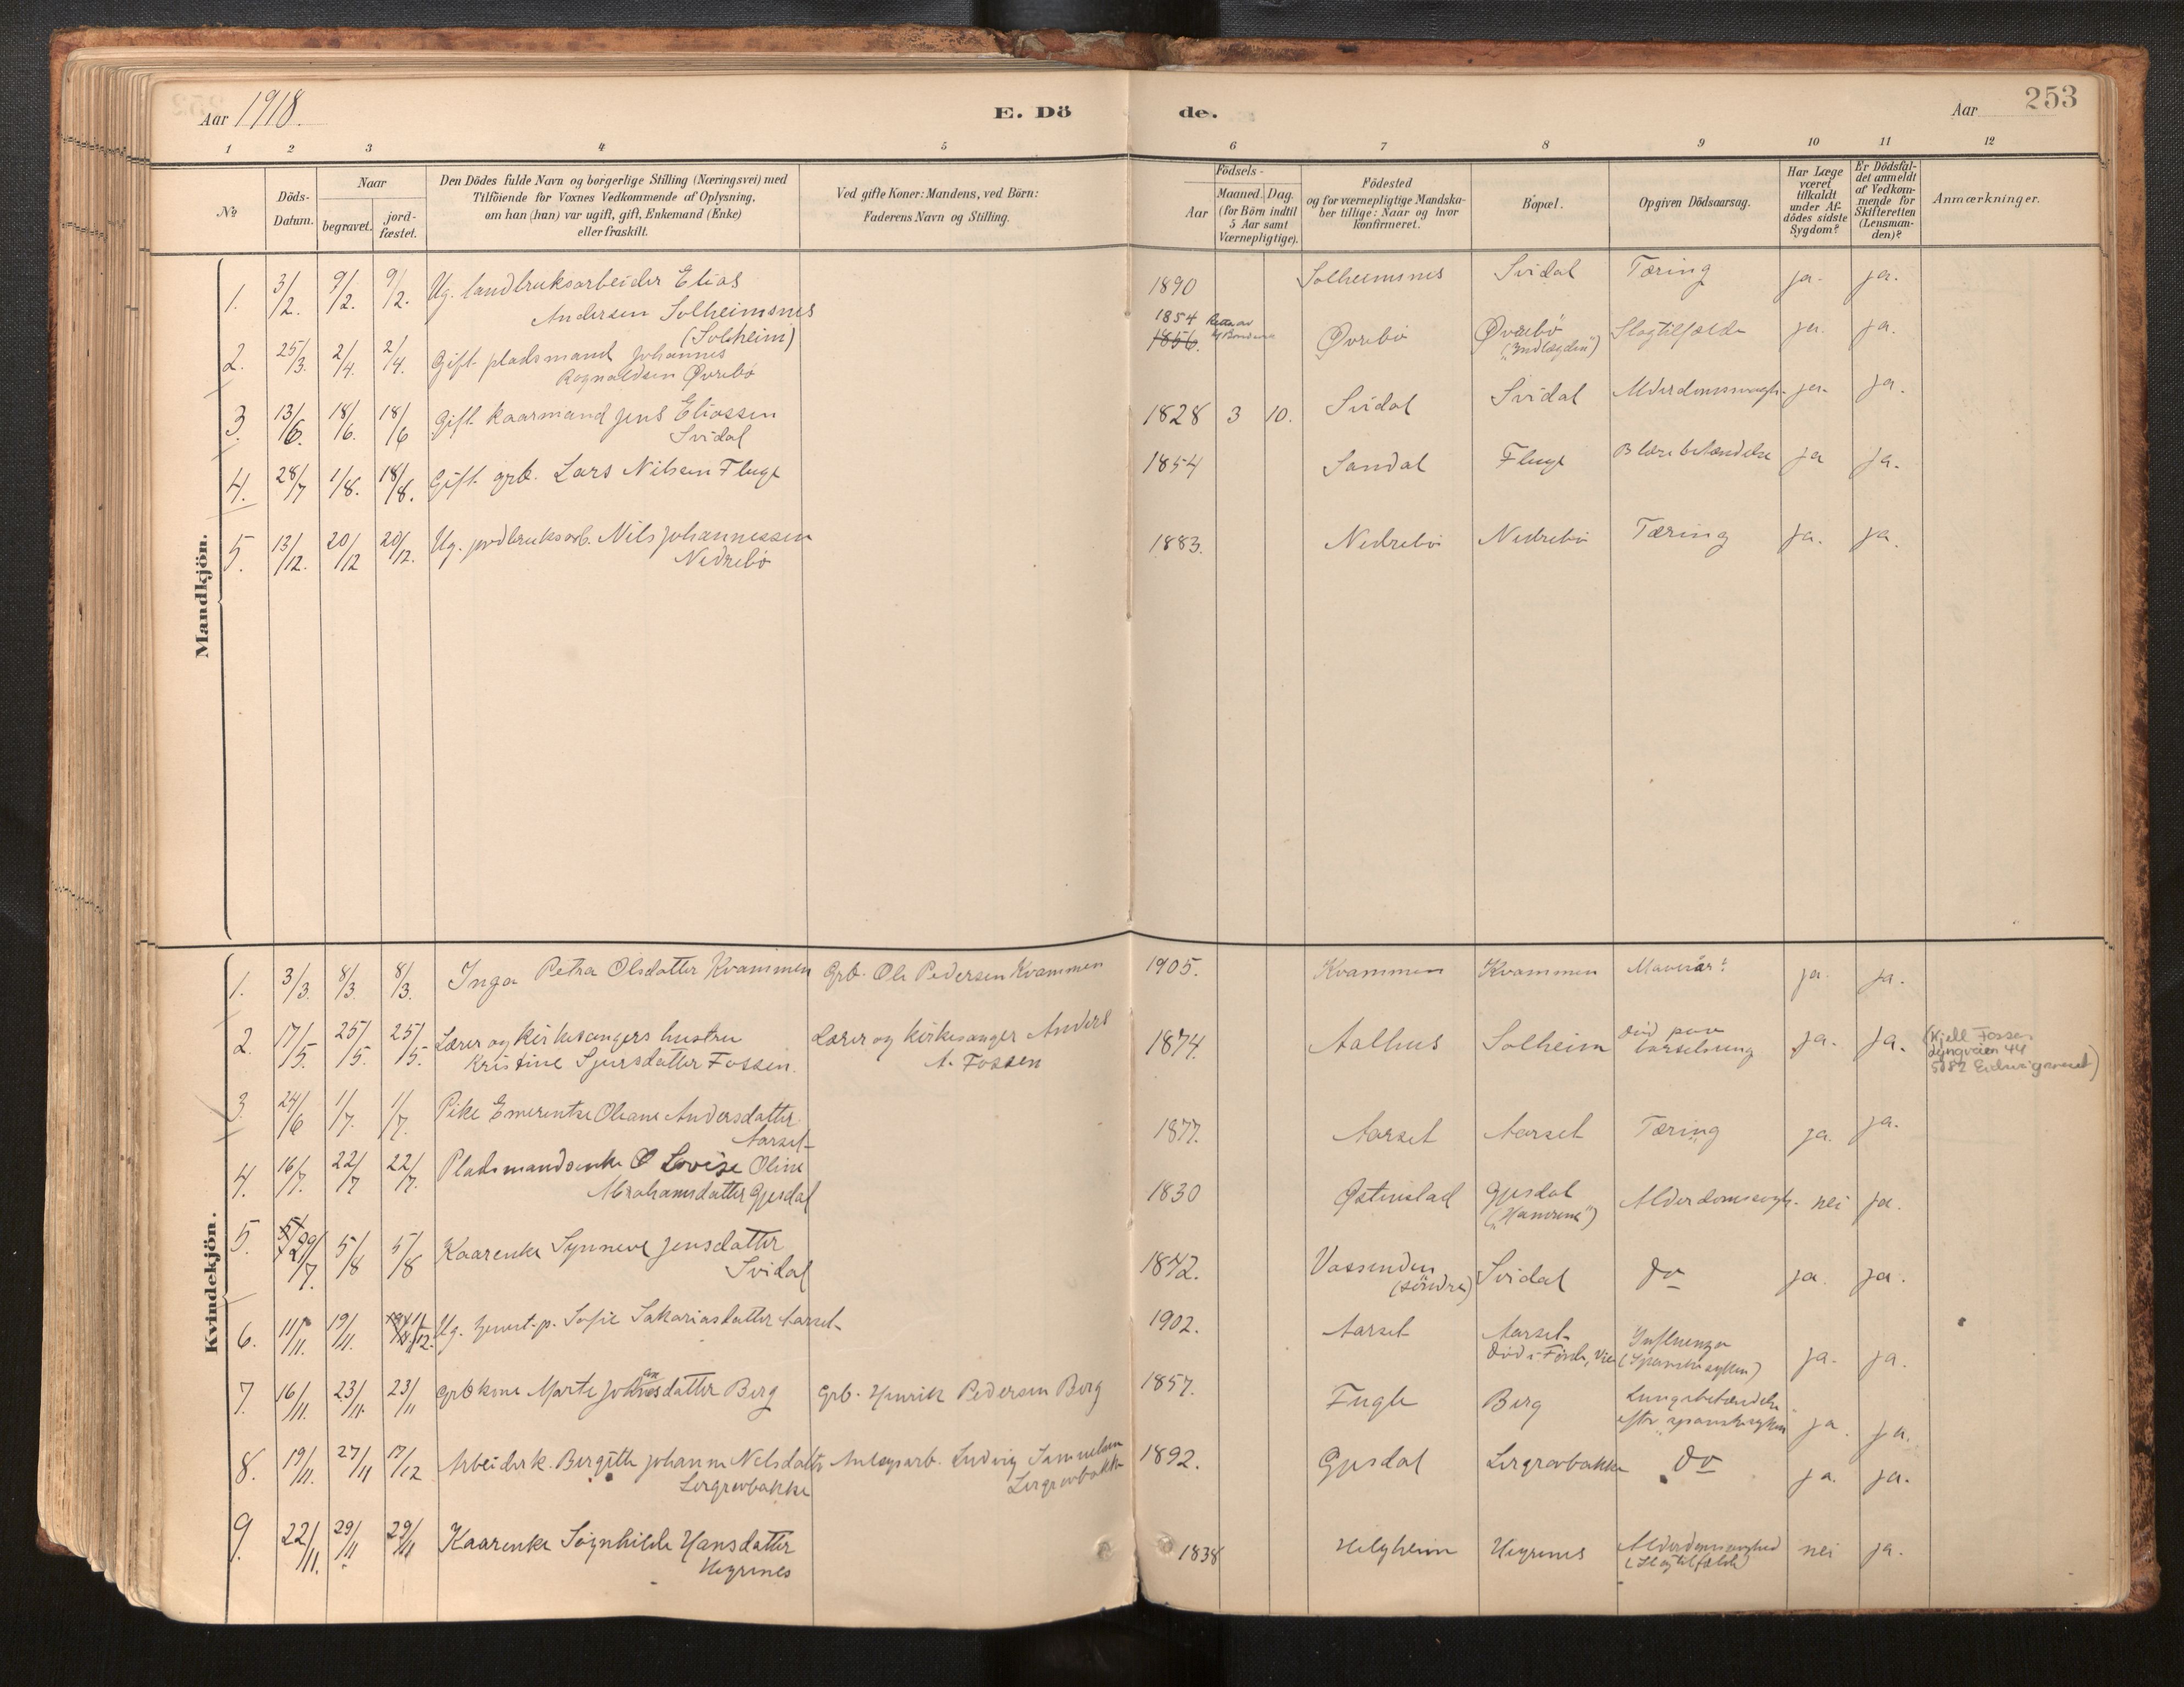 Aar 1918.
E. Dö de.
Aar
253
1 2 3 4 5 6 7 8 9 10 11 12
No
Döds-
Datum.
Naar
begravet.
jord-
fæstet.
Den Dödes fulde Navn og borgerlige Stilling (Næringsvei) med
Tilföiende for Voxnes Vedkommende af Oplysning,
om han (hun) var ugift, gift, Enkemand (Enke)
eller fraskilt.
Ved gifte Koner: Mandens, ved Börn:
Faderens Navn og Stilling.
Födsels-
Aar
Maaned. Dag.
(for Börn indtil
5 Aar samt
Værnepligtige).
Födested
og for værnepligtige Mandska-
ber tillige: Naar og hvor
konfirmeret.
Bopæl.
Opgiven Dödsaarsag.
Har Læge
været
tilkaldt
under Af-
dödes sidste
Sygdom?
Er Dödsfal-
det anmeldt
af Vedkom-
mende for
Skifteretten
(Lensman-
den)?
Anmærkninger.
Mandkjön.
1. 3/2. 9/2. 9/2. Ug. landbruksarbeider Elias 1890 Solheimsnes Svidal Tæring ja. ja.
Andersen Solheimsnes
(Solheim)
2. 25/3. 2/4. 2/4. Gift pladsmand Johannes 1854 1856. Øvrebö Øvrebö Slagtilfælde ja. ja.
Ragnaldsen Øvrebö
3. 13/6. 18/6. 18/6 Gift kaarmand Jens Eliassen 1828 3 10. Svidal Svidal Alderdomssvagh. ja. ja.
Svidal
4. 28/7 1/8. 18/8. Gift grb. Lars Nilsen Fluge 1854 Sandal Fluge Blærebetændelse ja ja.
5. 13/12. 20/12 20/12. Ug. jordbruksarb. Nils Johannessen 1883. Nedrebö Nedrebö Tæring ja. ja.
Nedrebö
Kvindekjön.
1. 3/3. 8/3. 8/3. Inga Petra Olsdatter Kvammen Grb. Ole Pedersen Kvammen 1905. Kvammen Kvammen Mavesår? ja. ja.
2. 17/5. 25/5. 25/5. Lærer og kirkesangers hustru Lærer og kirkesanger Anders 1874. Aalhus Solheim død paa ja. ja. (Kjell Fossen
Kristine Sjursdatter Fossen. A. Fossen barselseng Lyngveien 44
3. 24/6 1/7. 1/7. Pike Emerentse Oleane Andersdatter 1877. Aarset Aarset Tæring ja. ja.
Aarset
4. 16/7. 22/7 22/7. Pladsmandsenke Lovise Oline 1830 Østenstad Gjesdal Alderdomssvagh. nei ja.
Abrahamsdatter Gjesdal ("Hamrene")
5. 29/7. 5/8 5/8 Kaarenke Synneve Jensdatter 1842. Vassenden Svidal do ja. ja.
Svidal (söndre)
6. 11/11. 19/11. 1/12. Ug. tjenest.p. Sofie Sakariasdatter Aarset 1902. Aarset Aarset Influenza ja. ja.
Död i Förde, Vie (Spanskesyken)
7. 16/11. 23/11. 23/11 Grbkone Marte Johnsdatter Berg Grb. Henrik Pedersen Berg 1857. Fugle Berg Lungebetændelse ja. ja.
efter spanskesyken
8. 19/11. 27/11 17/12 Arbeiderk. Birgitte Johanne Nelsdatter Anlegsarb. Ludvig Samuelsen 1892. Gjesdal Lergrovbakke do ja. ja.
Lergrovbakke Lergrovbakke
9. 22/11. 29/11 29/11 Kaarenke Søgnhilde Hansdatter 1838 Helgheim Hegrenes Alderdomssvaghed nei ja.
Hegrenes (Slagtilfælde)